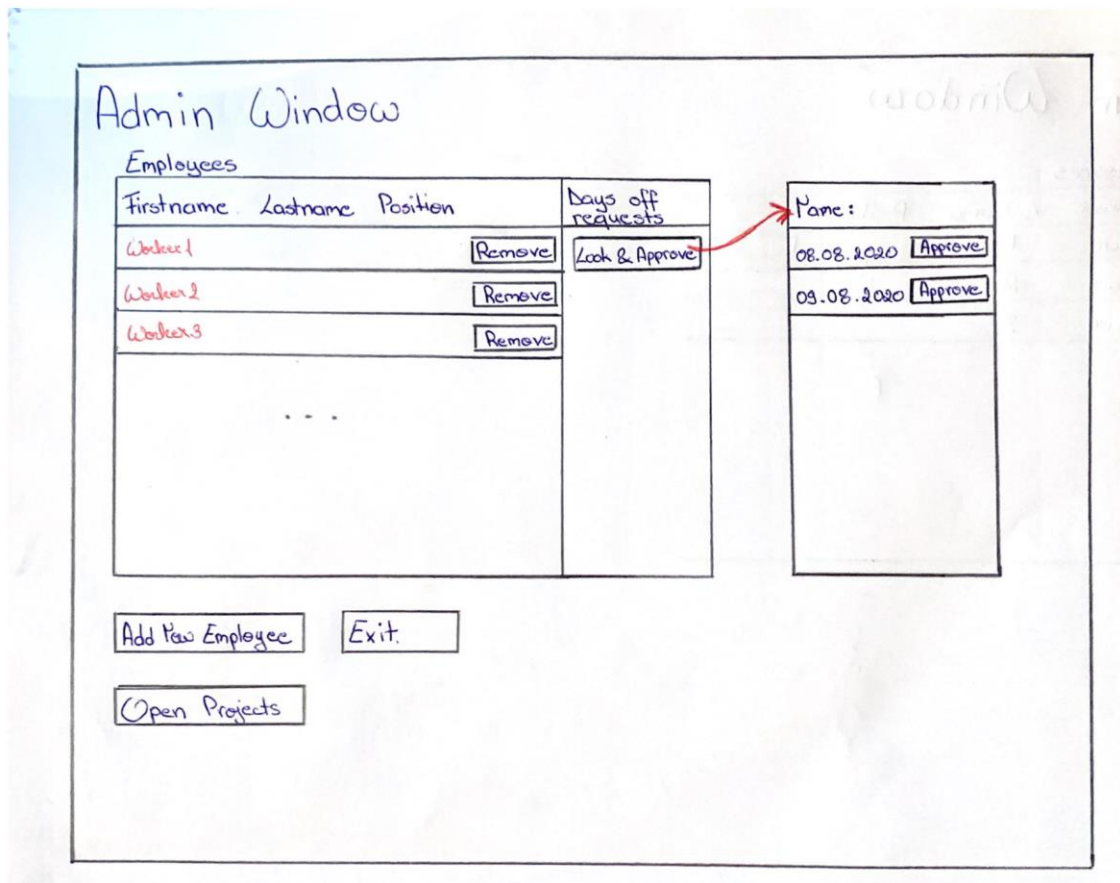 Admin Window
Employees
Firstname Lastname Position
Days off
requests
Name:
Worker1
Remove
Look & Approve
08.08.2020
Approve
Worker2
Remove
09.08.2020
Approve
Worker3
Remove
...
Add New Employee
Exit.
Open Projects